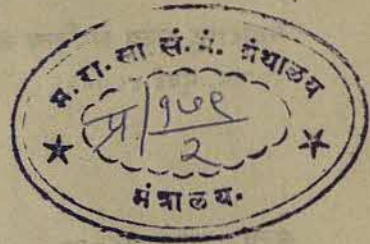 म. रा. सा सं. मं. ग्रंथालय
प्र/१७९
२
मंत्रालय.